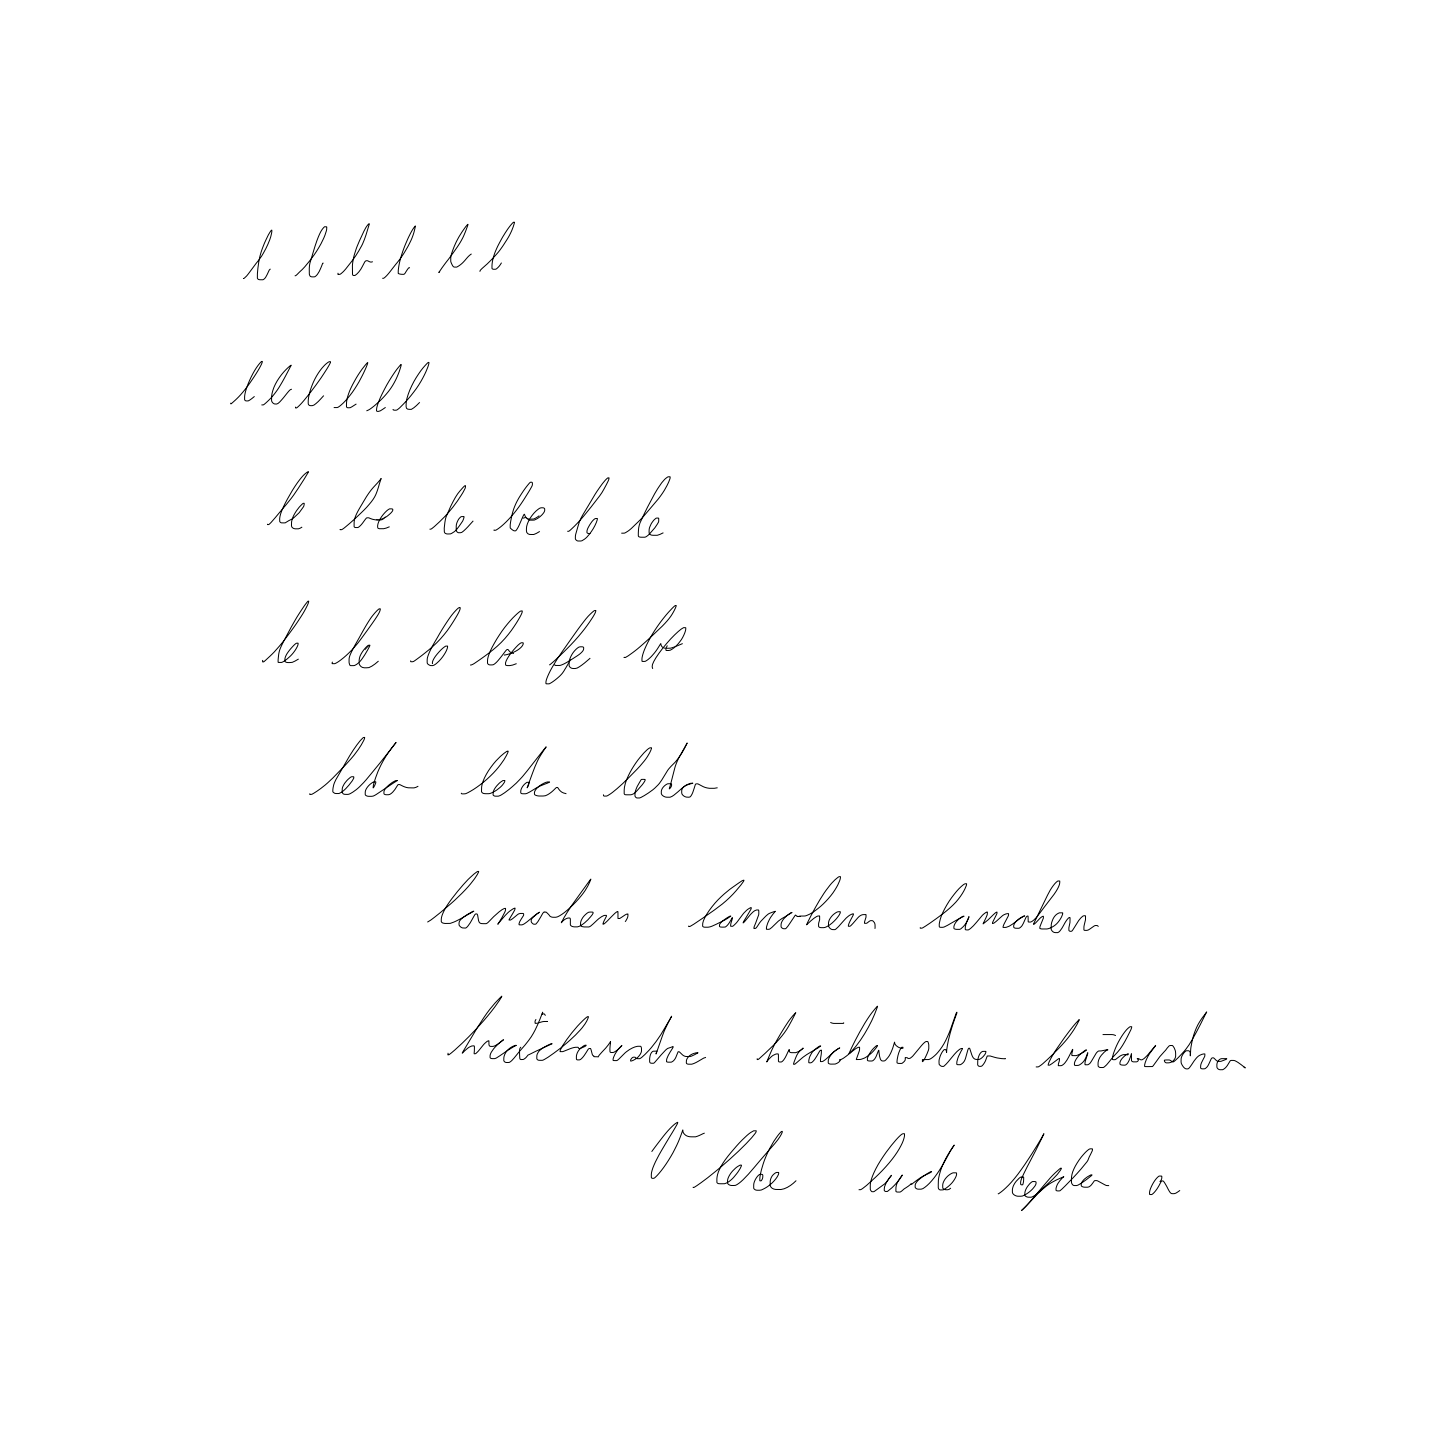 l l l l l l
l l l l l l
le le le le le le
le le le le le le
leto leto leto
lamohem lamohem lamohem
hračkarstvo hračkarstvo hračkarstvo
V lete bude teplo a